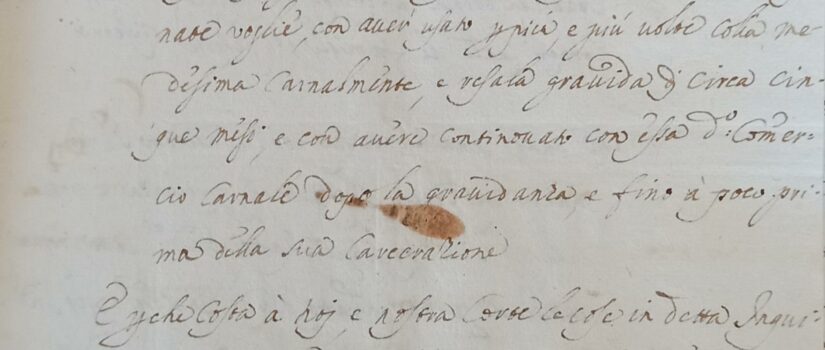 nate voglie, con aver usato più, e più volte colla me-
desima Carnalmente, e resala gravida di Circa Cin-
que mesi, e con avere continouato con essa d.º Comer-
cio Carnale dopo la gravidanza, e fino à poco pri-
ma della sua Carcerazione
E perche Costa à Noj, e nostra Corte le cose in detta Inqui-